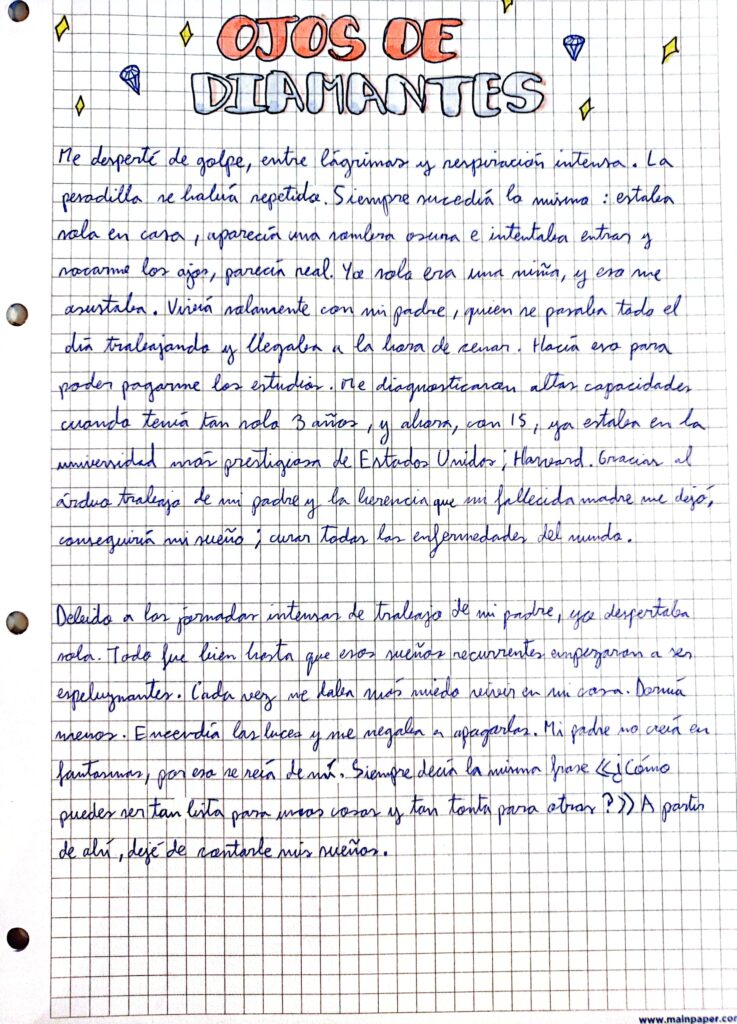 OJOS DE
DIAMANTES
Me desperté de golpe, entre lágrimas y respiración intensa. La
pesadilla se había repetido. Siempre sucedía lo mismo: estaba
sola en casa, aparecía una sombra oscura e intentaba entrar y
sacarme los ojos, parecía real. Yo solo era una niña, y eso me
asustaba. Vivía solamente con mi padre, quien se pasaba todo el
día trabajando y llegaba a la hora de cenar. Hacía eso para
poder pagarme los estudios. Me diagnosticaron altas capacidades
cuando tenía tan solo 3 años, y ahora, con 15, ya estaba en la
universidad más prestigiosa de Estados Unidos; Harvard. Gracias al
árduo trabajo de mi padre y la herencia que mi fallecida madre me dejó,
conseguiría mi sueño; curar todas las enfermedades del mundo.
Debido a las jornadas intensas de trabajo de mi padre, yo despertaba
sola. Todo fue bien hasta que esos sueños recurrentes empezaron a ser
espeluznantes. Cada vez me daba más miedo vivir en mi casa. Dormía
menos. Encendía las luces y me negaba a apagarlas. Mi padre no creía en
fantasmas, por eso se reía de mí. Siempre decía la misma frase «¿Cómo
puedes ser tan lista para unas cosas y tan tonta para otras?» A partir
de ahí, dejé de contarle mis sueños.
www.mainpaper.com